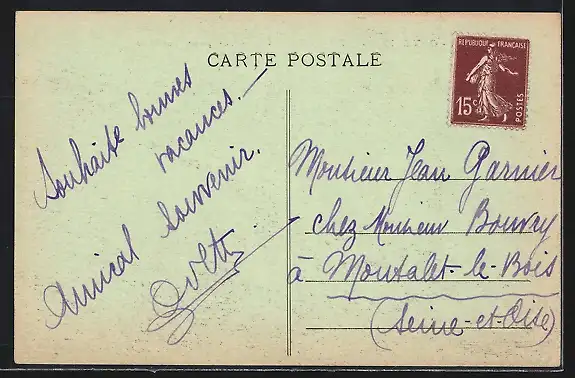 CARTE POSTALE
REPUBLIQUE FRANÇAISE
15c
POSTES
Souhaite bonnes
vacances.—
Amical souvenir.
Monsieur Jean Garnier
chez Monsieur Bouvry
à Montalet-le-Bois
(Seine-et-Oise)